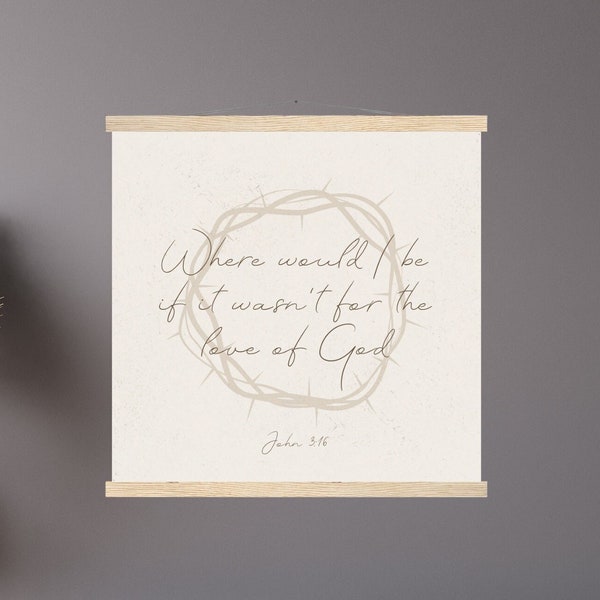 Where would I be
if it wasn't for the
love of God
John 3:16